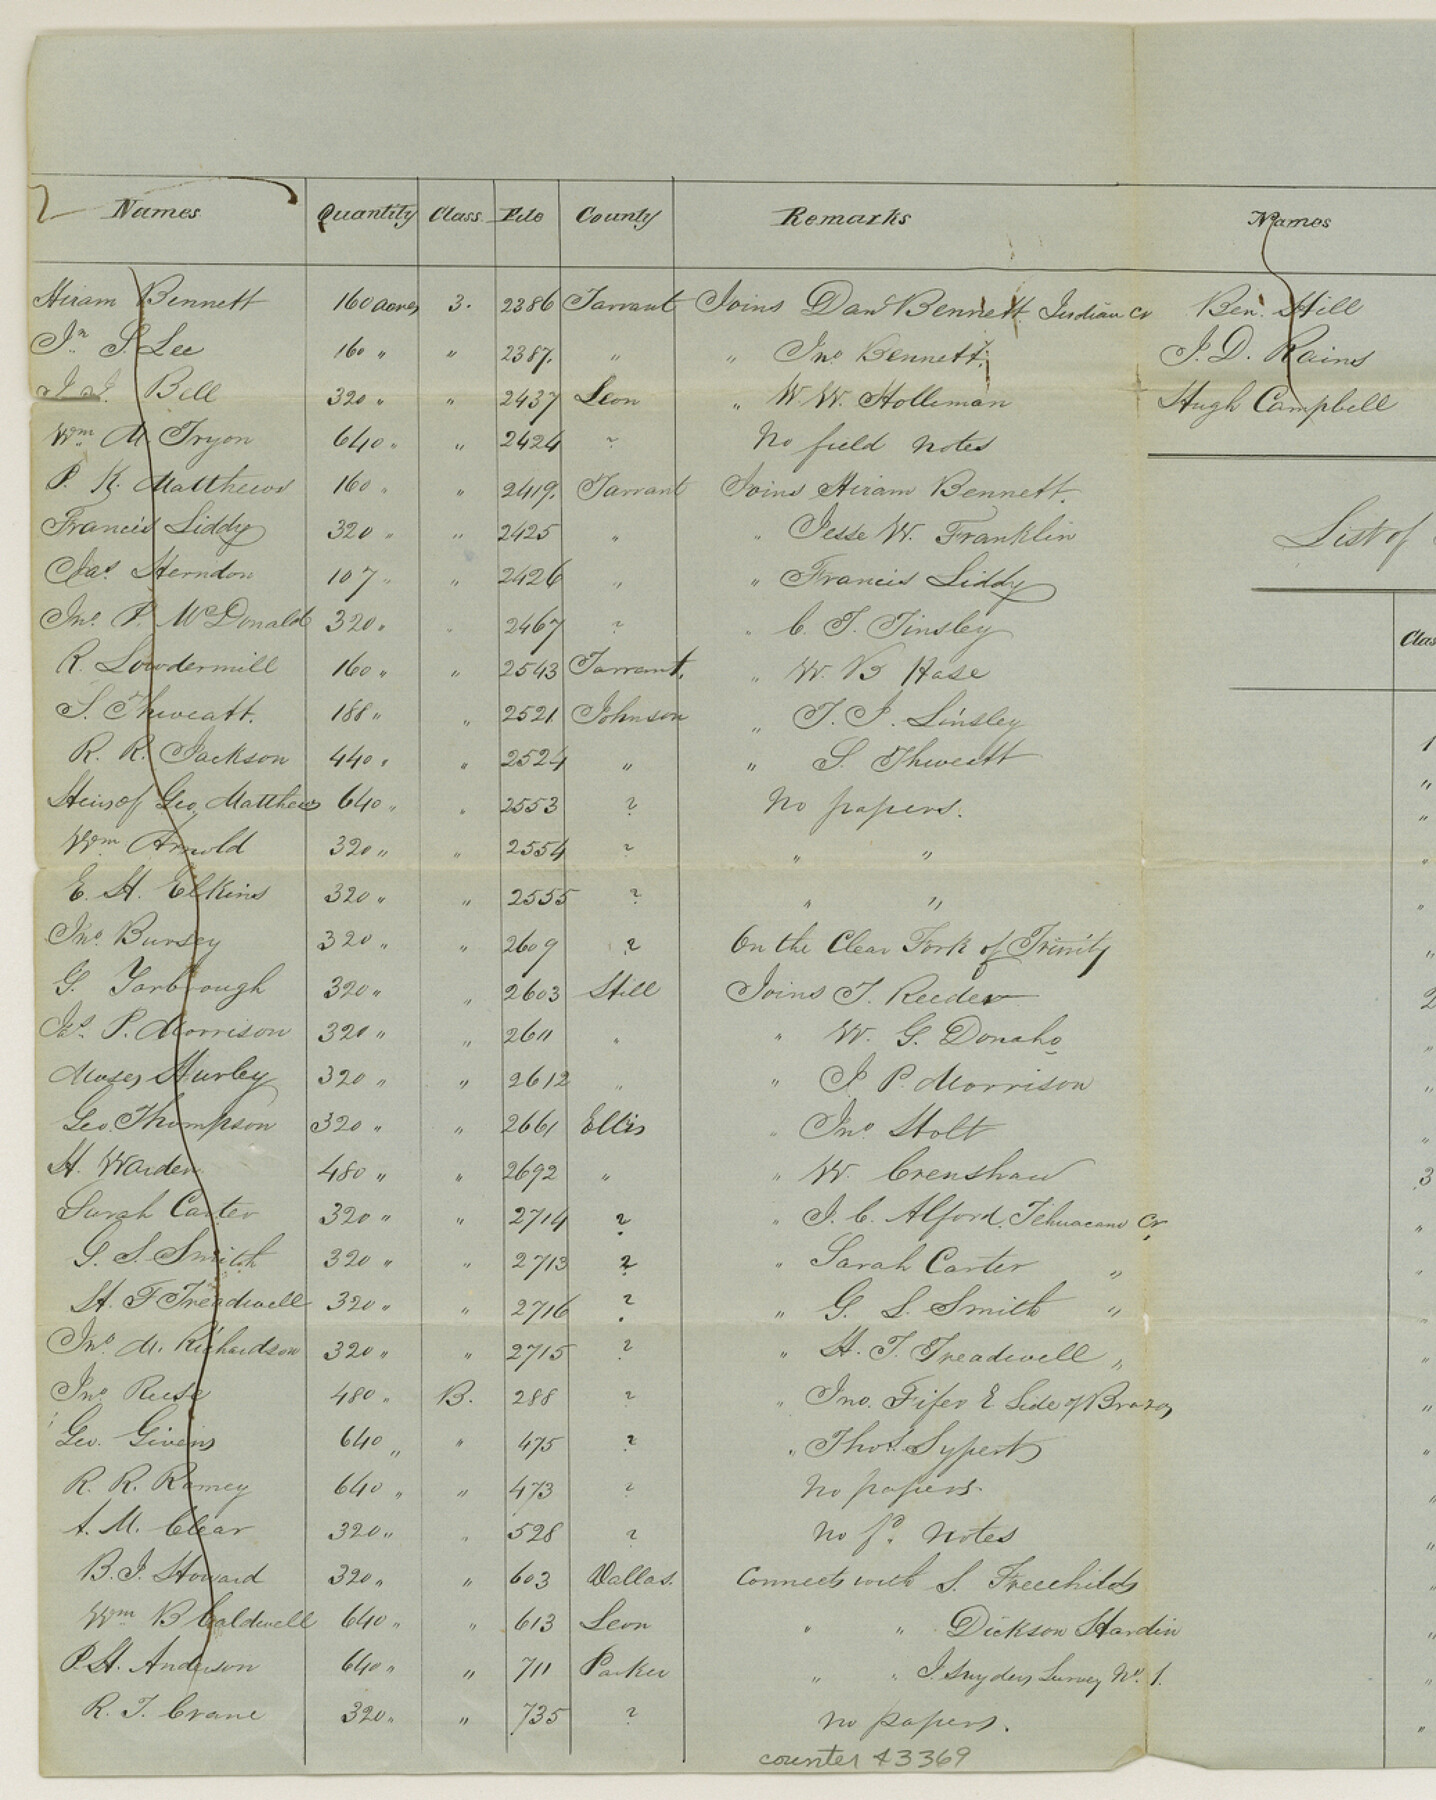 Names Quantity Class. File County Remarks Names
Hiram Bennett 160 acres 3. 2386 Tarrant Joins Danl Bennett Indian Cr Ben. Hill
Jn S. Lee 160 " " 2387. " " Jno Bennett. J. D. Rains
J. J. Bell 320 " " 2437 Leon " W. W. Holleman Hugh Campbell
Wm M. Tryon 640 " " 2424 ? No field notes
P. K. Matthews 160 " " 2419. Tarrant Joins Hiram Bennett.
Francis Liddy 320 " " 2425 " " Jesse W. Franklin
List of
Jas. Herndon 107 " " 2426 " " Francis Liddy
Jno. P. McDonald 320 " " 2467 ? " C. T. Tinsley
Clas
R. Lowdermill 160 " " 2543 Tarrant. " W. B Hase
S. Thweatt. 188 " " 2521 Johnson " T. J. Linsley
1
R. R. Jackson 440 " " 2524 " " S. Thweatt
"
Heirs of Geo. Matthews 640 " " 2553 ? No papers.
"
Wm Arnold 320 " " 2554 ? " "
"
E. H. Elkins 320 " " 2555 ? " "
"
Jno. Bursey 320 " " 2609 ? On the Clear Fork of Trinity
"
G. Yarbrough 320 " " 2603 Hill Joins T. Reeder
2
Jas. P. Morrison 320 " " 2611 " " W. G. Donaho
"
Moses Hurley 320 " " 2612 " " J. P. Morrison
"
Geo. Thompson 320 " " 2661 Ellis " Jno Holt
"
H. Warden 480 " " 2692 " " W. Crenshaw
3
Sarah Carter 320 " " 2714 ? " J. C. Alford. Tehuacano Cr.
"
G. S. Smith 320 " " 2713 ? " Sarah Carter "
"
H. F Treadwell 320 " " 2716 ? " G. S. Smith "
"
Jno. M. Richardson 320 " " 2715 ? " H. F. Treadwell "
"
Jno Reese 480 " B. 288 ? " Jno. Fifer E Side of Brazos
"
Geo. Givens 640 " " 475 ? " Thos. Sypert
"
R. R. Ramey 640 " " 473 ? No papers.
"
A. M. Clear 320 " " 528 ? No fd. notes
"
B. J. Howard 320 " " 603 Dallas. Connects with S. Freechilds
"
Wm B Caldwell 640 " " 613 Leon " " Dickson Hardin
"
P. H. Anderson 640 " " 711 Parker " " J. Snyders Survey No. 1.
"
R. T. Crane 320 " " 735 ? no papers.
"
counter 43369